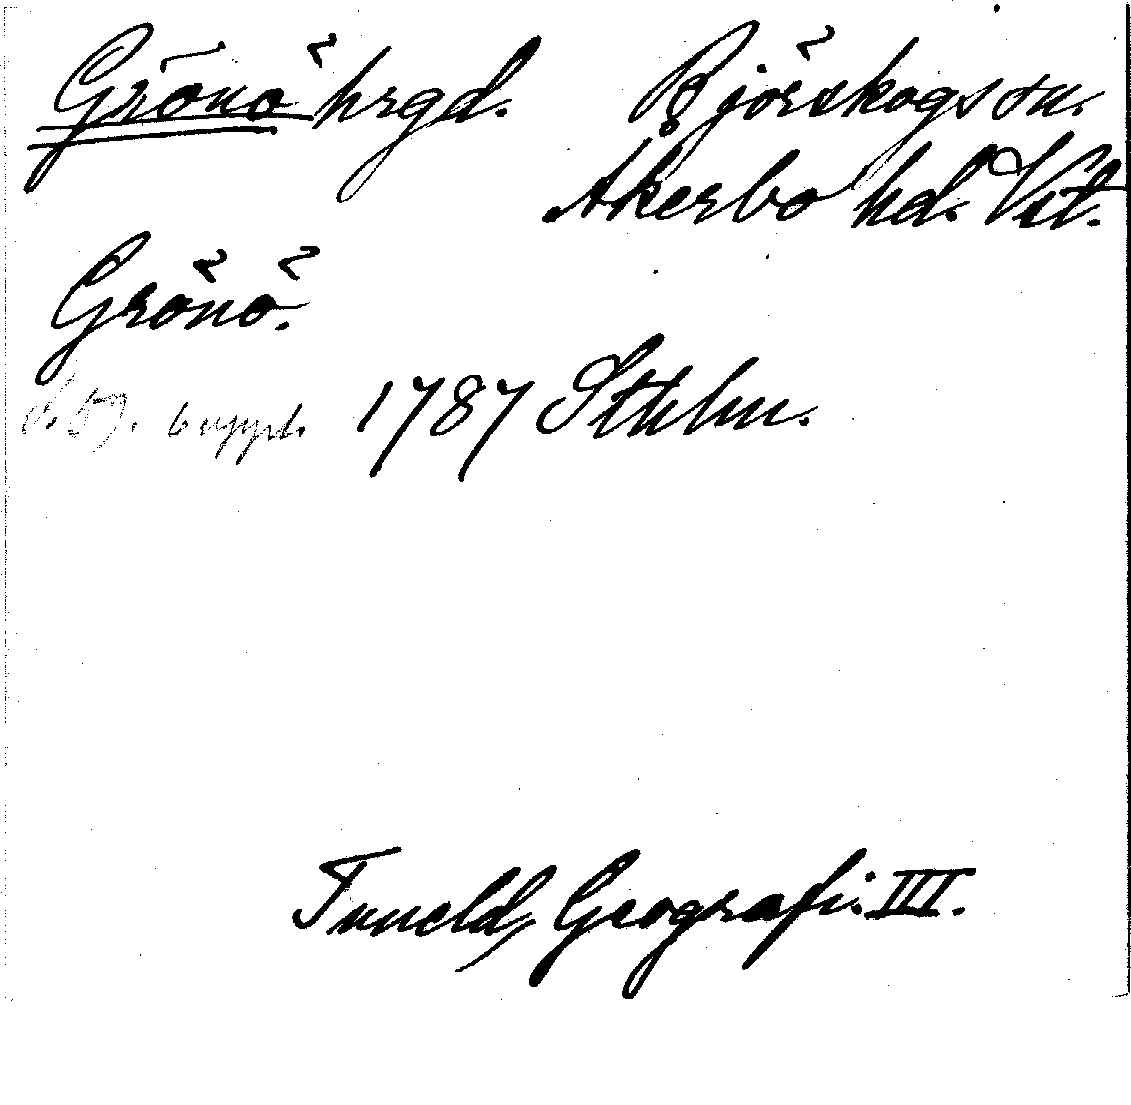 Grönö hrgd. Björskogs sn.
Åkerbo hd. Vstm.
Grönö.
s. 59. 6 uppl. 1787 Sthlm.
Tuneld, Geografi. III.